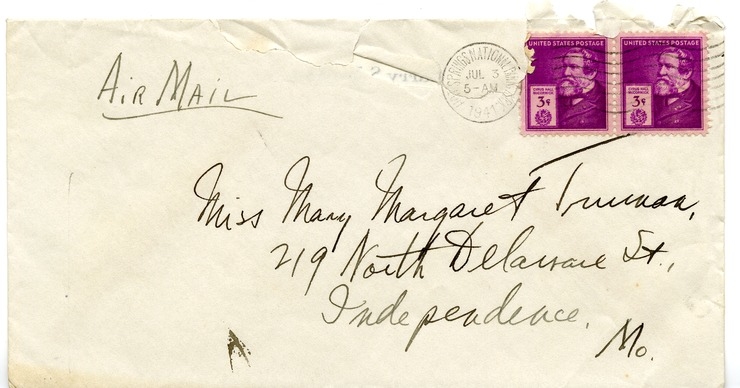 AIR MAIL
HOT SPRINGS NATIONAL PARK
JUL 3
5-AM
1941
UNITED STATES POSTAGE
CYRUS HALL
McCORMICK
3¢
UNITED STATES POSTAGE
CYRUS HALL
McCORMICK
3¢
Miss Mary Margaret Truman,
219 North Delaware St.,
Independence.
Mo.